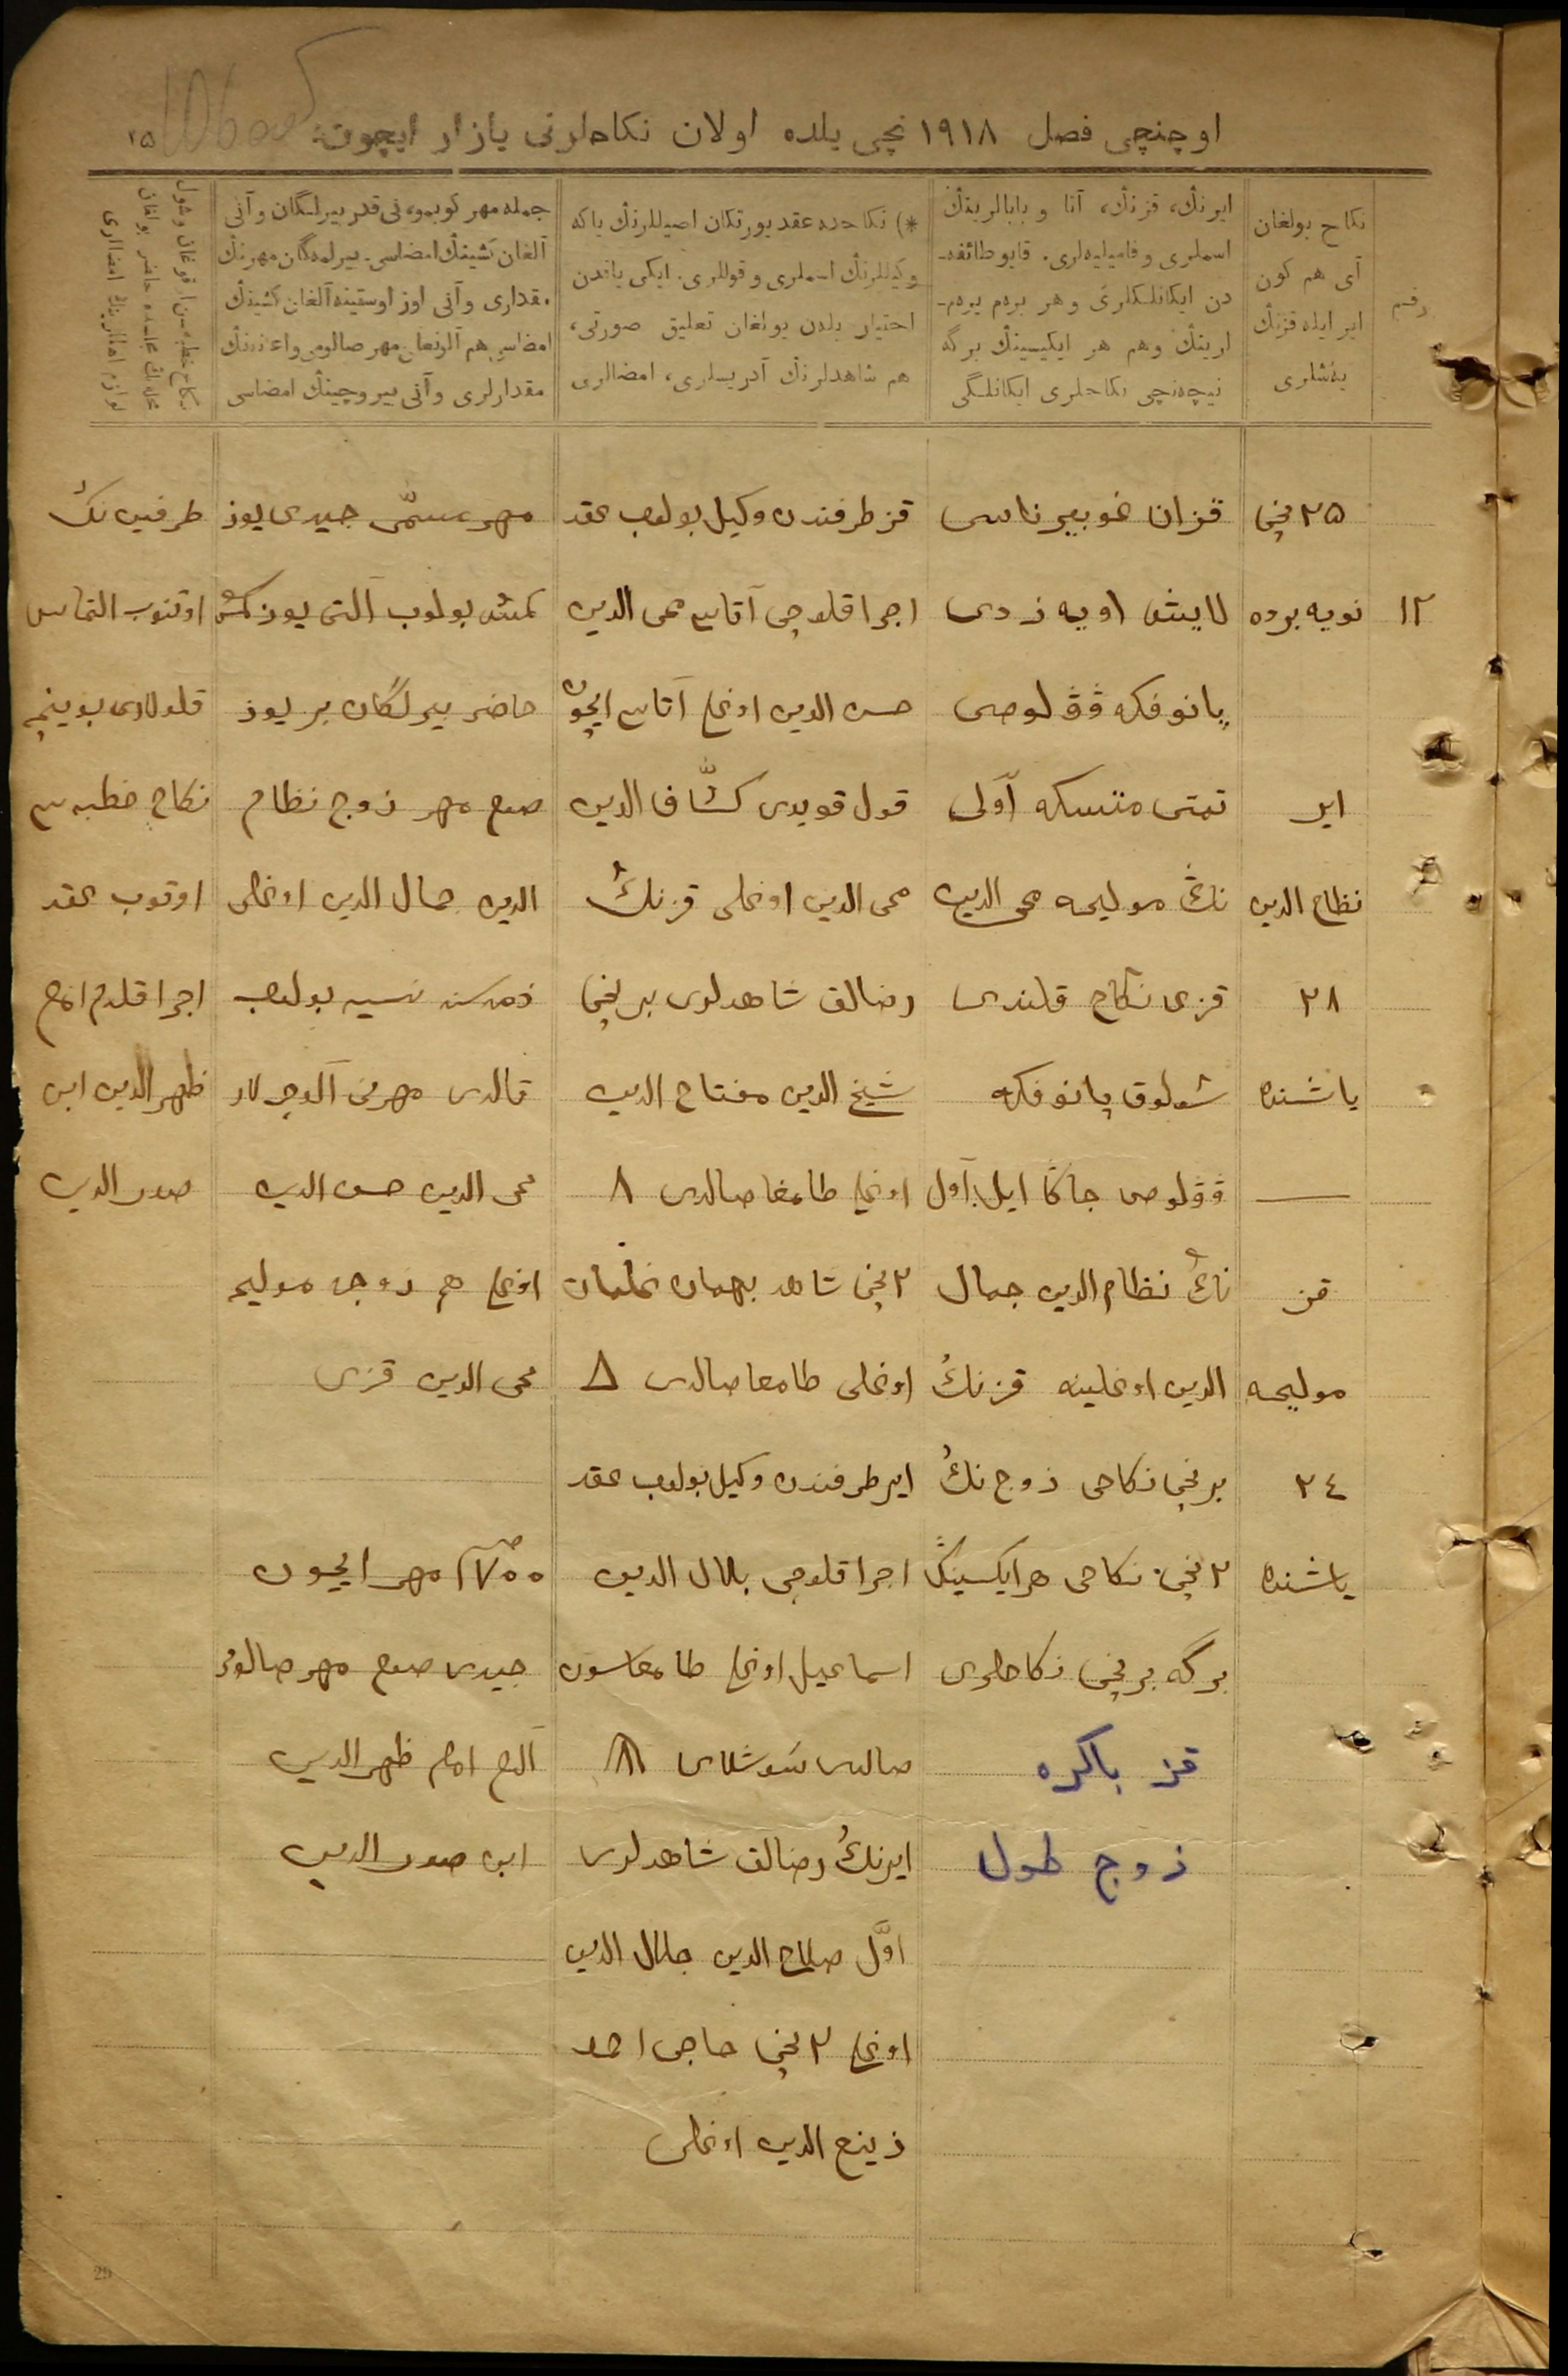 اوچنچی فصل ۱۹۱۸ نچی یلده اولان نکاحلرنی یازار ایچون:
۲۵
رقم
نکاح بولغان
آی هم کون
ایر ایله قزنڭ
یەشلری
ایرنڭ، قزنڭ، آنا و بابالرینڭ
اسملری و فامیلیه‌لری. قایو طائفه‌ـ
دن ایکانلکلری وهر برم برم‌ـ
ارینڭ وهم هر ایکیسینڭ برگه
نیچه‌نچی نکاحلری ایکانلگی
*) نکاحده عقد یورتکان اصیللرنڭ یاکه
وکیللرنڭ اسملری و قوللری. ایکی یاقدن
اختیار یلدن بولغان تعلیق صورتی،
هم شاهدلرنڭ آدریسلری، امضالری
جمله مهر کوبمو، نی قدر بیرلگان و آنی
آلغان کشینڭ امضاسی. بیرلمه‌گان مهرنڭ
مقداری و آنی اوز اوستینه آلغان کشینڭ
امضاسی هم آلونغان مهر صالومی واعانه‌نڭ
مقدارلری و آنی بیروچینڭ امضاسی
۱۲
۲۵ نچی
نویه برده
ایر
نظام الدین
۲۸
یاشنده
قز
مولیحه
۲٤
یاشنده
قزان غوبیرناسی
لایش اویه زدی
پانوفکه ڤۇلوصی
تمتی متسکه آولی
ناڭ مولیحه محی الدین
قزی نکاح قلندی
شولوق پانوفکه
ڤۇلوصی جاڭا ایل آول
ناڭ نظام الدین جمال
الدین اوغلینه قزنڭ
برنچی نکاحی زوج نڭ
۲ نچی نکاحی هر ایکسینڭ
برگه برنچی نکاحلری
قز باکره
زوج طول
قز طرفندن وکیل بولوب عقد
اجرا قلوچی آتاسی محی الدین
حسن الدین اوغلی آتاسی ایچون
قول قویدی کشّاف الدین
محی الدین اوغلی قزنڭ
رضالق شاهدلری برنچی
شیخ الدین مفتاح الدین
اوغلی طامغا صالدی ۸
۲ نچی شاهد بهمان نعمان
اوغلی طامغا صالدی Δ
ایر طرفندن وکیل بولوب عقد
اجرا قلوچی بلال الدین
اسماعیل اوغلی طامغاسون
صالدی
ایرنڭ رضالق شاهدلری
اوّل صلاح الدین جلال الدین
اوغلی ۲ نچی حاجی احمد
زینع الدین اوغلی
مهر مسمّی جیدی یوز
کمش بولوب آلتی یوز کمش
حاضر بیرلگان بر یوز
صوم مهر زوج نظام
الدین جمال الدین اوغلی
ذمه‌سنه نسیه بولوب
قالدی مهرنی آلوچیلار
محی الدین حسن الدین
اوغلی هم زوجه مولیحه
محی الدین قزی
۷۰۰ مهر ایچون
جیدی صوم مهر صالومی
آلدم امام ظهر الدین
ابن صدر الدین
طرفین نڭ
اوتنوب التماس
قلولاری بوینچه
نکاح خطبه سی
اوقوب عقد
اجرا قلدم امام
ظهر الدین ابن
صدر الدین
29